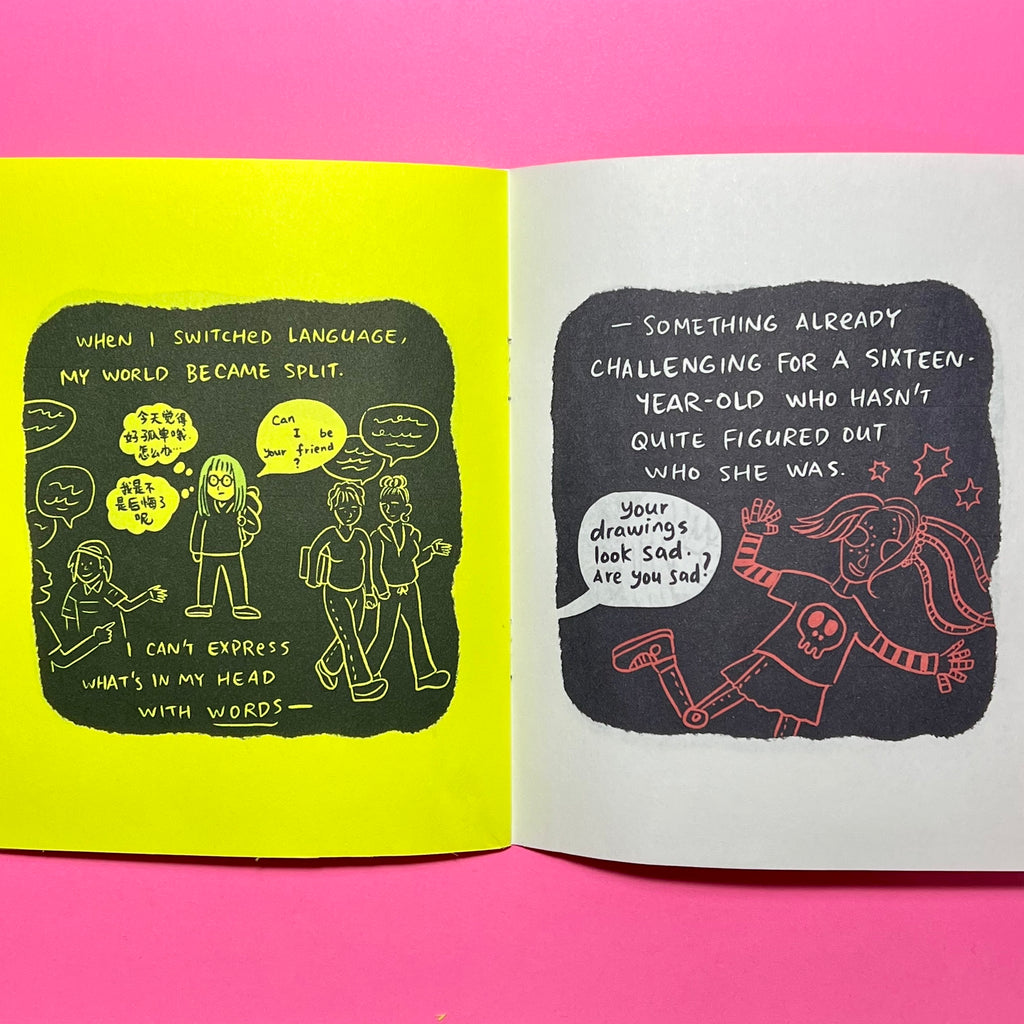 WHEN I SWITCHED LANGUAGE,
MY WORLD BECAME SPLIT.
今天觉得
好孤单哦.
怎么办...
我是不
是后悔了
呢
Can
I be
your friend
?
I CAN'T EXPRESS
WHAT'S IN MY HEAD
WITH WORDS—
— SOMETHING ALREADY
CHALLENGING FOR A SIXTEEN-
YEAR-OLD WHO HASN'T
QUITE FIGURED OUT
WHO SHE WAS.
Your
drawings
look sad.
Are you sad?